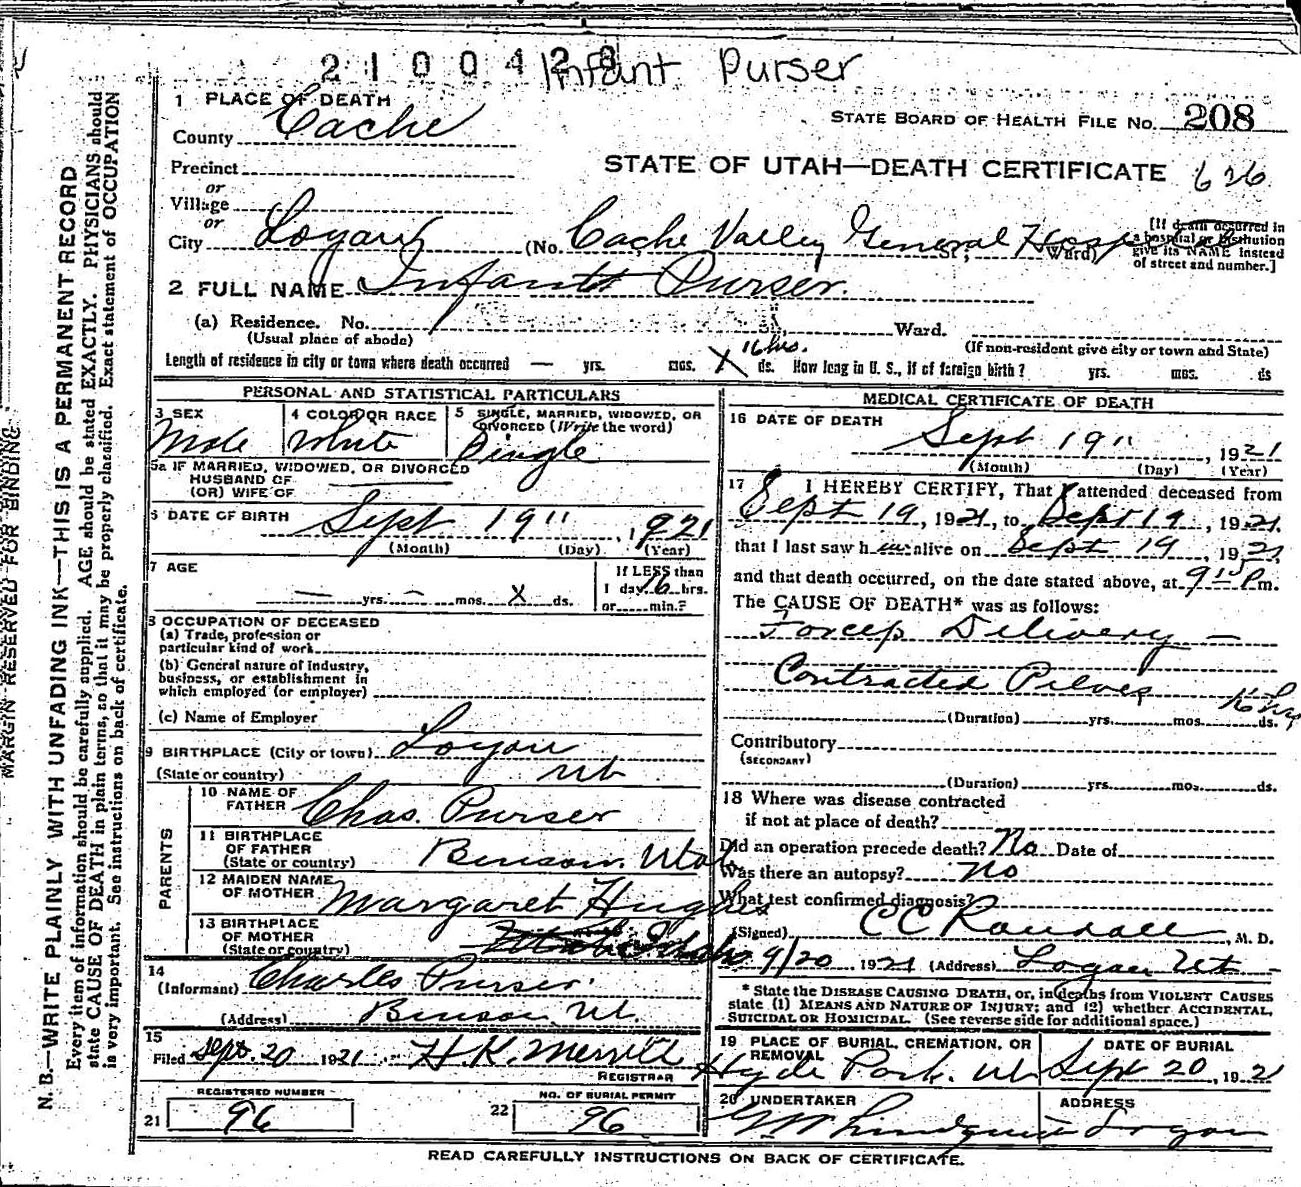 2100428 Infant Purser
1 PLACE OF DEATH
County Cache
STATE BOARD OF HEALTH FILE No. 208
Precinct
or
STATE OF UTAH—DEATH CERTIFICATE 626
Village
or
City Logan (No. Cache Valley General Hosp St.; Ward) [If death occurred in a hospital or institution give its NAME instead of street and number.]
2 FULL NAME Infant Purser.
(a) Residence. No. Ward.
(Usual place of abode) (If non-resident give city or town and State)
Length of residence in city or town where death occurred — yrs. mos. X 16 hrs. ds. How long in U. S., if of foreign birth? yrs. mos. ds
PERSONAL AND STATISTICAL PARTICULARS
3 SEX Male
4 COLOR OR RACE White
5 SINGLE, MARRIED, WIDOWED, OR DIVORCED (Write the word) Single
5a IF MARRIED, WIDOWED, OR DIVORCED
HUSBAND OF
(OR) WIFE OF
6 DATE OF BIRTH Sept 19" 1921
(Month) (Day) (Year)
7 AGE — yrs. — mos. X ds.
If LESS than
1 day 16 hrs.
or min.?
8 OCCUPATION OF DECEASED
(a) Trade, profession or
particular kind of work
(b) General nature of Industry,
business, or establishment in
which employed (or employer)
(c) Name of Employer
9 BIRTHPLACE (City or town) Logan
(State or country) Ut
PARENTS
10 NAME OF
FATHER Chas. Purser
11 BIRTHPLACE
OF FATHER
(State or country) Benson, Utah
12 MAIDEN NAME
OF MOTHER Margaret Hughes
13 BIRTHPLACE
OF MOTHER
(State or country) Idaho
14
(Informant) Charles Purser
(Address) Benson, Ut.
15
Filed Sept. 20 1921 H K. Merrill
REGISTRAR
REGISTERED NUMBER
21 96
NO. OF BURIAL PERMIT
22 96
MEDICAL CERTIFICATE OF DEATH
16 DATE OF DEATH
Sept 19" , 1921
(Month) (Day) (Year)
17 I HEREBY CERTIFY, That I attended deceased from
Sept 19, 1921, to Sept 19, 1921,
that I last saw h im alive on Sept 19, 1921,
and that death occurred, on the date stated above, at 9 15 P m.
The CAUSE OF DEATH* was as follows:
Forcep Delivery —
Contracted Pelves
(Duration) yrs. mos. 16 hrs ds.
Contributory
(SECONDARY)
(Duration) yrs. mos. ds.
18 Where was disease contracted
if not at place of death?
Did an operation precede death? No Date of
Was there an autopsy? No
What test confirmed diagnosis?
(Signed) C C Randall, M. D.
9/20 1921 (Address) Logan Ut —
* State the DISEASE CAUSING DEATH, or, in deaths from VIOLENT CAUSES
state (1) MEANS AND NATURE OF INJURY; and (2) whether ACCIDENTAL,
SUICIDAL OR HOMICIDAL. (See reverse side for additional space.)
19 PLACE OF BURIAL, CREMATION, OR
REMOVAL
Hyde Park. Ut
DATE OF BURIAL
Sept 20, 1921
20 UNDERTAKER
Lundquist
ADDRESS
Logan
READ CAREFULLY INSTRUCTIONS ON BACK OF CERTIFICATE.
MARGIN RESERVED FOR BINDING
N. B.—WRITE PLAINLY WITH UNFADING INK—THIS IS A PERMANENT RECORD
Every item of information should be carefully supplied. AGE should be stated EXACTLY. PHYSICIANS should
state CAUSE OF DEATH in plain terms, so that it may be properly classified. Exact statement of OCCUPATION
is very important. See instructions on back of certificate.